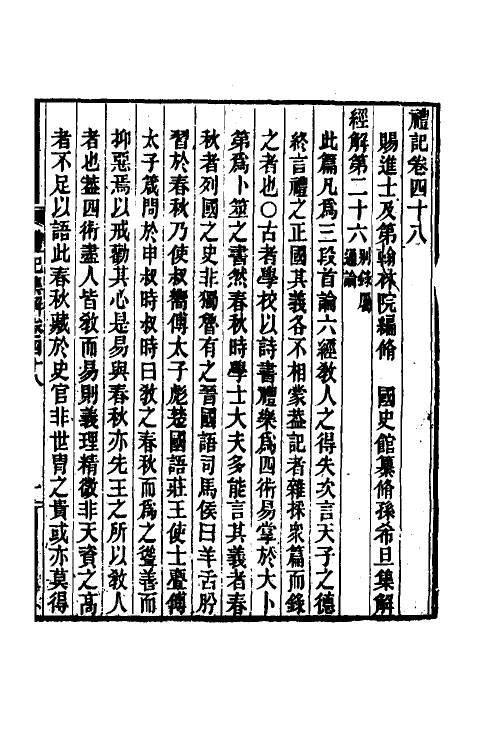 禮記卷四十八
賜進士及第翰林院編脩　國史館纂脩孫希旦集解
經解第二十六別錄屬通論
此篇凡為三段首論六經敎人之得失次言天子之德
終言禮之正國其義各不相蒙葢記者雜採眾篇而錄
之者也○古者學校以詩書禮樂為四術易掌於大卜
第為卜筮之書然春秋時學士大夫多能言其義者春
秋者列國之史非獨魯有之晉國語司馬侯曰羊舌肸
習於春秋乃使叔嚮傅太子彪楚國語莊王使士亹傅
太子葴問於申叔時叔時曰敎之春秋而為之聳善而
抑惡焉以戒勸其心是易與春秋亦先王之所以敎人
者也葢四術盡人皆敎而易則義理精微非天資之高
者不足以語此春秋藏於史官非世胄之貴或亦莫得
記集解卷四十八